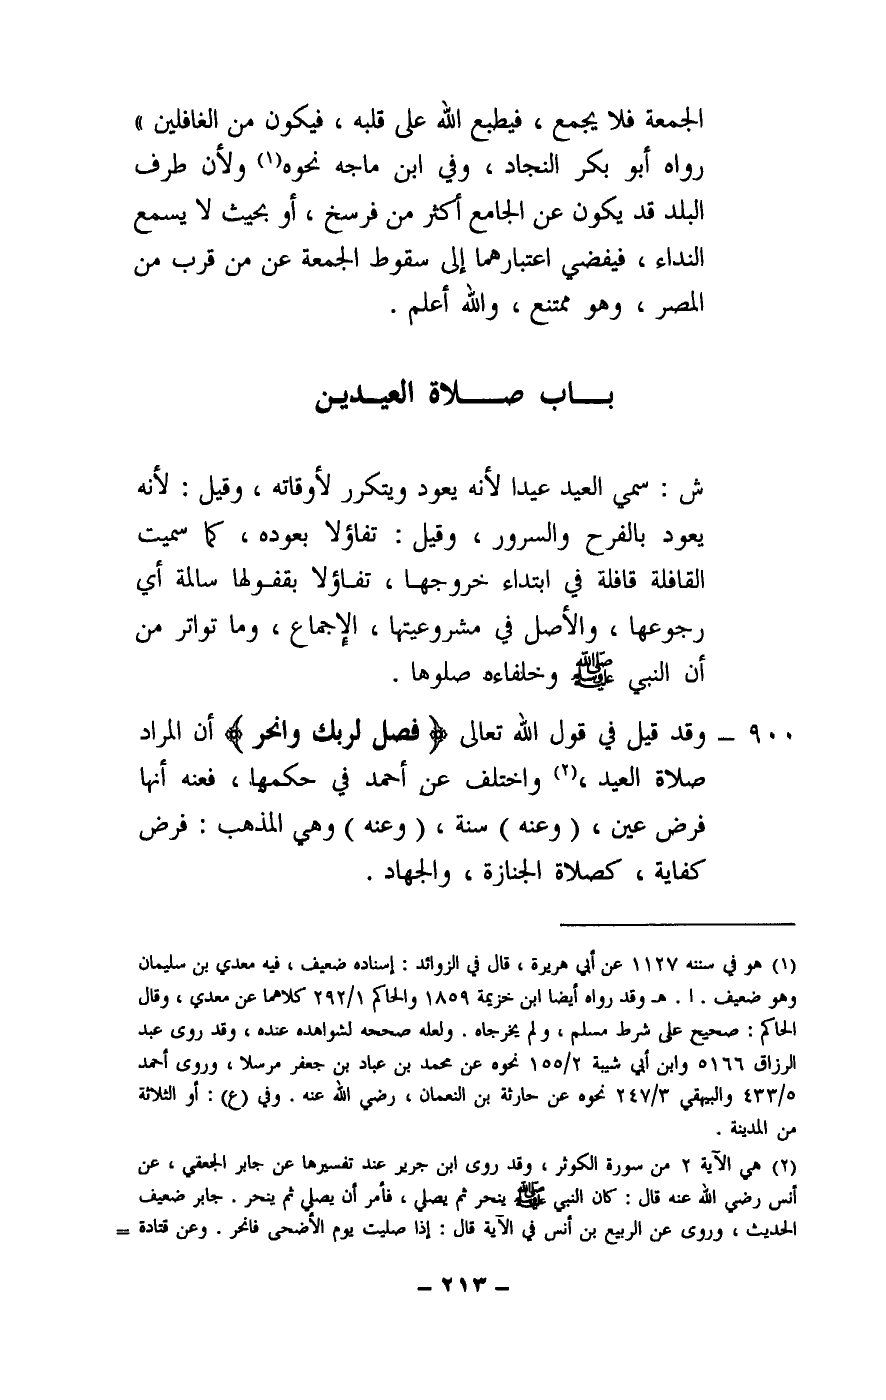 الجمعة فلا يجمع ، فيطبع الله على قلبه ، فيكون من الغافلين »
رواه أبو بكر النجاد ، وفي ابن ماجه نحوه(١) ولأن طرف
البلد قد يكون عن الجامع أكثر من فرسخ ، أو بحيث لا يسمع
النداء ، فيفضي اعتبارهما إلى سقوط الجمعة عن من قرب من
المصر ، وهو ممتنع ، والله أعلم .
بـــاب صـــلاة العيـديـن
ش : سمي العيد عيدا لأنه يعود ويتكرر لأوقاته ، وقيل : لأنه
يعود بالفرح والسرور ، وقيل : تفاؤلا بعوده ، كما سميت
القافلة قافلة في ابتداء خروجهـا ، تفـاؤلا بقفـولها سالمة أي
رجوعها ، والأصل في مشروعيتها ، الإجماع ، وما تواتر من
أن النبي ﷺ وخلفاءه صلوها .
٩٠٠ ـ وقد قيل في قول الله تعالى ﴿ فصل لربك وانحر ﴾ أن المراد
صلاة العيد ،(٢) واختلف عن أحمد في حكمها ، فعنه أنها
فرض عين ، ( وعنه ) سنة ، ( وعنه ) وهي المذهب : فرض
كفاية ، كصلاة الجنازة ، والجهاد .
(١) هو في سننه ١١٢٧ عن أبي هريرة ، قال في الزوائد : إسناده ضعيف ، فيه معدي بن سليمان
وهو ضعيف . ا . هـ وقد رواه أيضا ابن خزيمة ١٨٥٩ والحاكم ٢٩٢/١ كلاهما عن معدي ، وقال
الحاكم : صحيح على شرط مسلم ، ولم يخرجاه . ولعله صححه لشواهده عنده ، وقد روى عبد
الرزاق ٥١٦٦ وابن أبي شيبة ١٥٥/٢ نحوه عن محمد بن عباد بن جعفر مرسلا ، وروى أحمد
٤٣٣/٥ والبيهقي ٢٤٧/٣ نحوه عن حارثة بن النعمان ، رضي الله عنه . وفي (ع) : أو الثلاثة
من المدينة .
(٢) هي الآية ٢ من سورة الكوثر ، وقد روى ابن جرير عند تفسيرها عن جابر الجعفي ، عن
أنس رضي الله عنه قال : كان النبي ﷺ ينحر ثم يصلي ، فأمر أن يصلي ثم ينحر . جابر ضعيف
الحديث ، وروى عن الربيع بن أنس في الآية قال : إذا صليت يوم الأضحى فانحر . وعن قتادة =
ـ ٢١٣ ـ